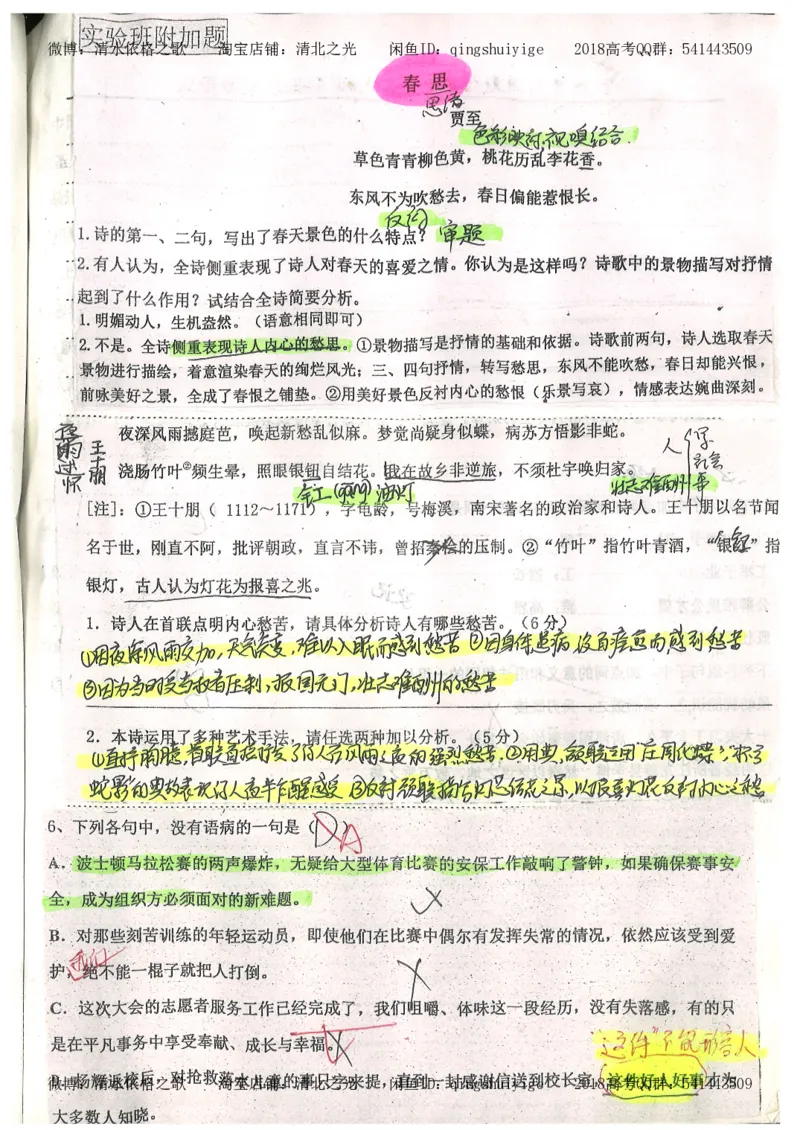 实验班附加题
微博：清水依格之歌 淘宝店铺：清北之光 闲鱼ID：qingshuiyige 2018高考QQ群：541443509
春思
思绪
贾至
色彩映衬，视嗅结合
草色青青柳色黄，桃花历乱李花香。
东风不为吹愁去，春日偏能惹恨长。
反问
1.诗的第一、二句，写出了春天景色的什么特点？ 审题
2.有人认为，全诗侧重表现了诗人对春天的喜爱之情。你认为是这样吗？诗歌中的景物描写对抒情
起到了什么作用？试结合全诗简要分析。
1.明媚动人，生机盎然。（语意相同即可）
2.不是。全诗侧重表现诗人内心的愁思。①景物描写是抒情的基础和依据。诗歌前两句，诗人选取春天
景物进行描绘，着意渲染春天的绚烂风光；三、四句抒情，转写愁思，东风不能吹愁，春日却能兴恨，
前咏美好之景，全成了春恨之铺垫。②用美好景色反衬内心的愁恨（乐景写哀），情感表达婉曲深刻。
夜雨述怀
王十朋
夜深风雨撼庭芭，唤起新愁乱似麻。梦觉尚疑身似蝶，病苏方悟影非蛇。
浇肠竹叶②频生晕，照眼银缸自结花。我在故乡非逆旅，不须杜宇唤归家。
人
壮志难酬
[注]：①王十朋（ 1112～1171），字龟龄，号梅溪，南宋著名的政治家和诗人。王十朋以名节闻
名于世，刚直不阿，批评朝政，直言不讳，曾招秦桧的压制。②“竹叶”指竹叶青酒，“银缸”指
银灯，古人认为灯花为报喜之兆。
1．诗人在首联点明内心愁苦，请具体分析诗人有哪些愁苦。（6分）
①因夜深风雨交加，天气恶劣，难以入眠而感到愁苦 ②因身体患病没有痊愈而感到愁苦
③因为当时受当权者压制，报国无门，壮志难酬的愁苦
2．本诗运用了多种艺术手法，请任选两种加以分析。（5分）
①直抒胸臆，首联直接抒发了诗人夜风雨之夜的强烈愁苦，②用典，颔联运用“庄周化蝶”，“杯弓
蛇影”的典故表现诗人夜半乍醒感受 ③反衬
6、下列各句中，没有语病的一句是（D） A
A．波士顿马拉松赛的两声爆炸，无疑给大型体育比赛的安保工作敲响了警钟，如果确保赛事安
全，成为组织方必须面对的新难题。
B．对那些刻苦训练的年轻运动员，即使他们在比赛中偶尔有发挥失常的情况，依然应该受到爱
护，绝不能一棍子就把人打倒。
C．这次大会的志愿者服务工作已经完成了，我们咀嚼、体味这一段经历，没有失落感，有的只
是在平凡事务中享受奉献、成长与幸福。
这件“不能形容人
D．杨辉返校后，对抢救落水儿童的事只字未提，直到一封感谢信送到校长室，这件好人好事才为
微博：清水依格之歌 淘宝店铺：清北之光 闲鱼ID：qingshuiyige 2018高考QQ群：541443509
大多数人知晓。